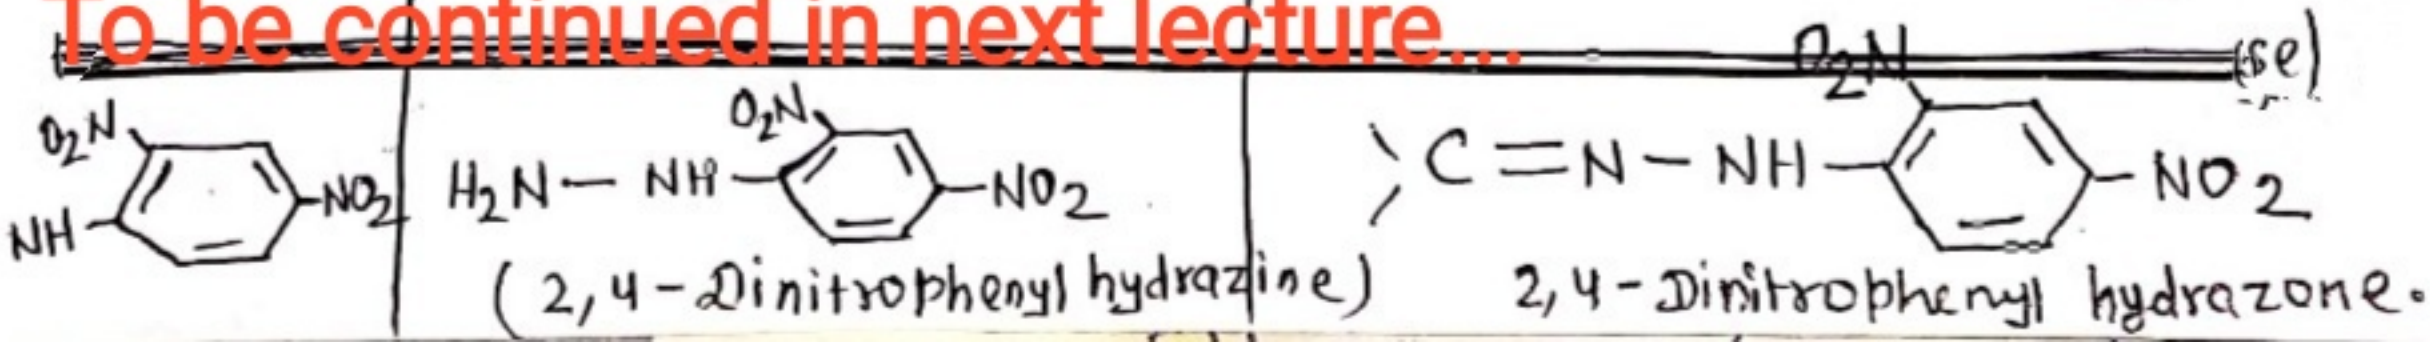 To be continued in next lecture...
(se)
O2N
NH
NO2
O2N
H2N — NH
NO2
(2,4-Dinitrophenyl hydrazine)
O2N
C=N-NH
NO2
2,4-Dinitrophenyl hydrazone.